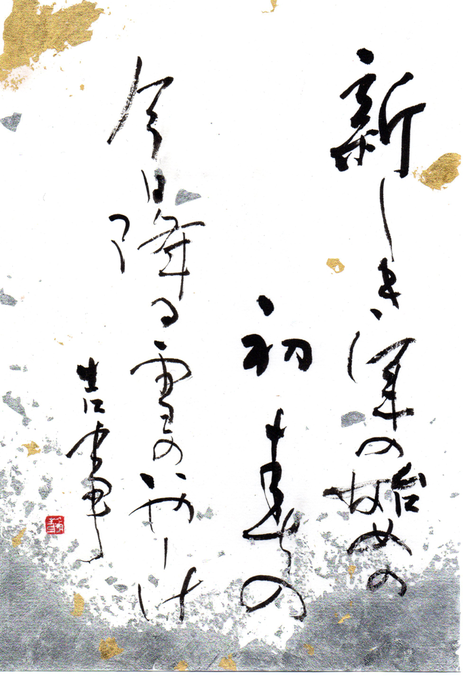 新しき年の始めの
初春の
今日降る雪のいやしけ
吉事